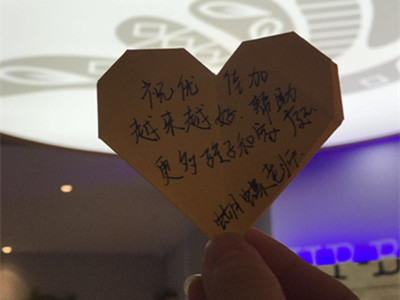 祝优佳加
越来越好、帮助
更多孩子和家庭
蝴蝶老师